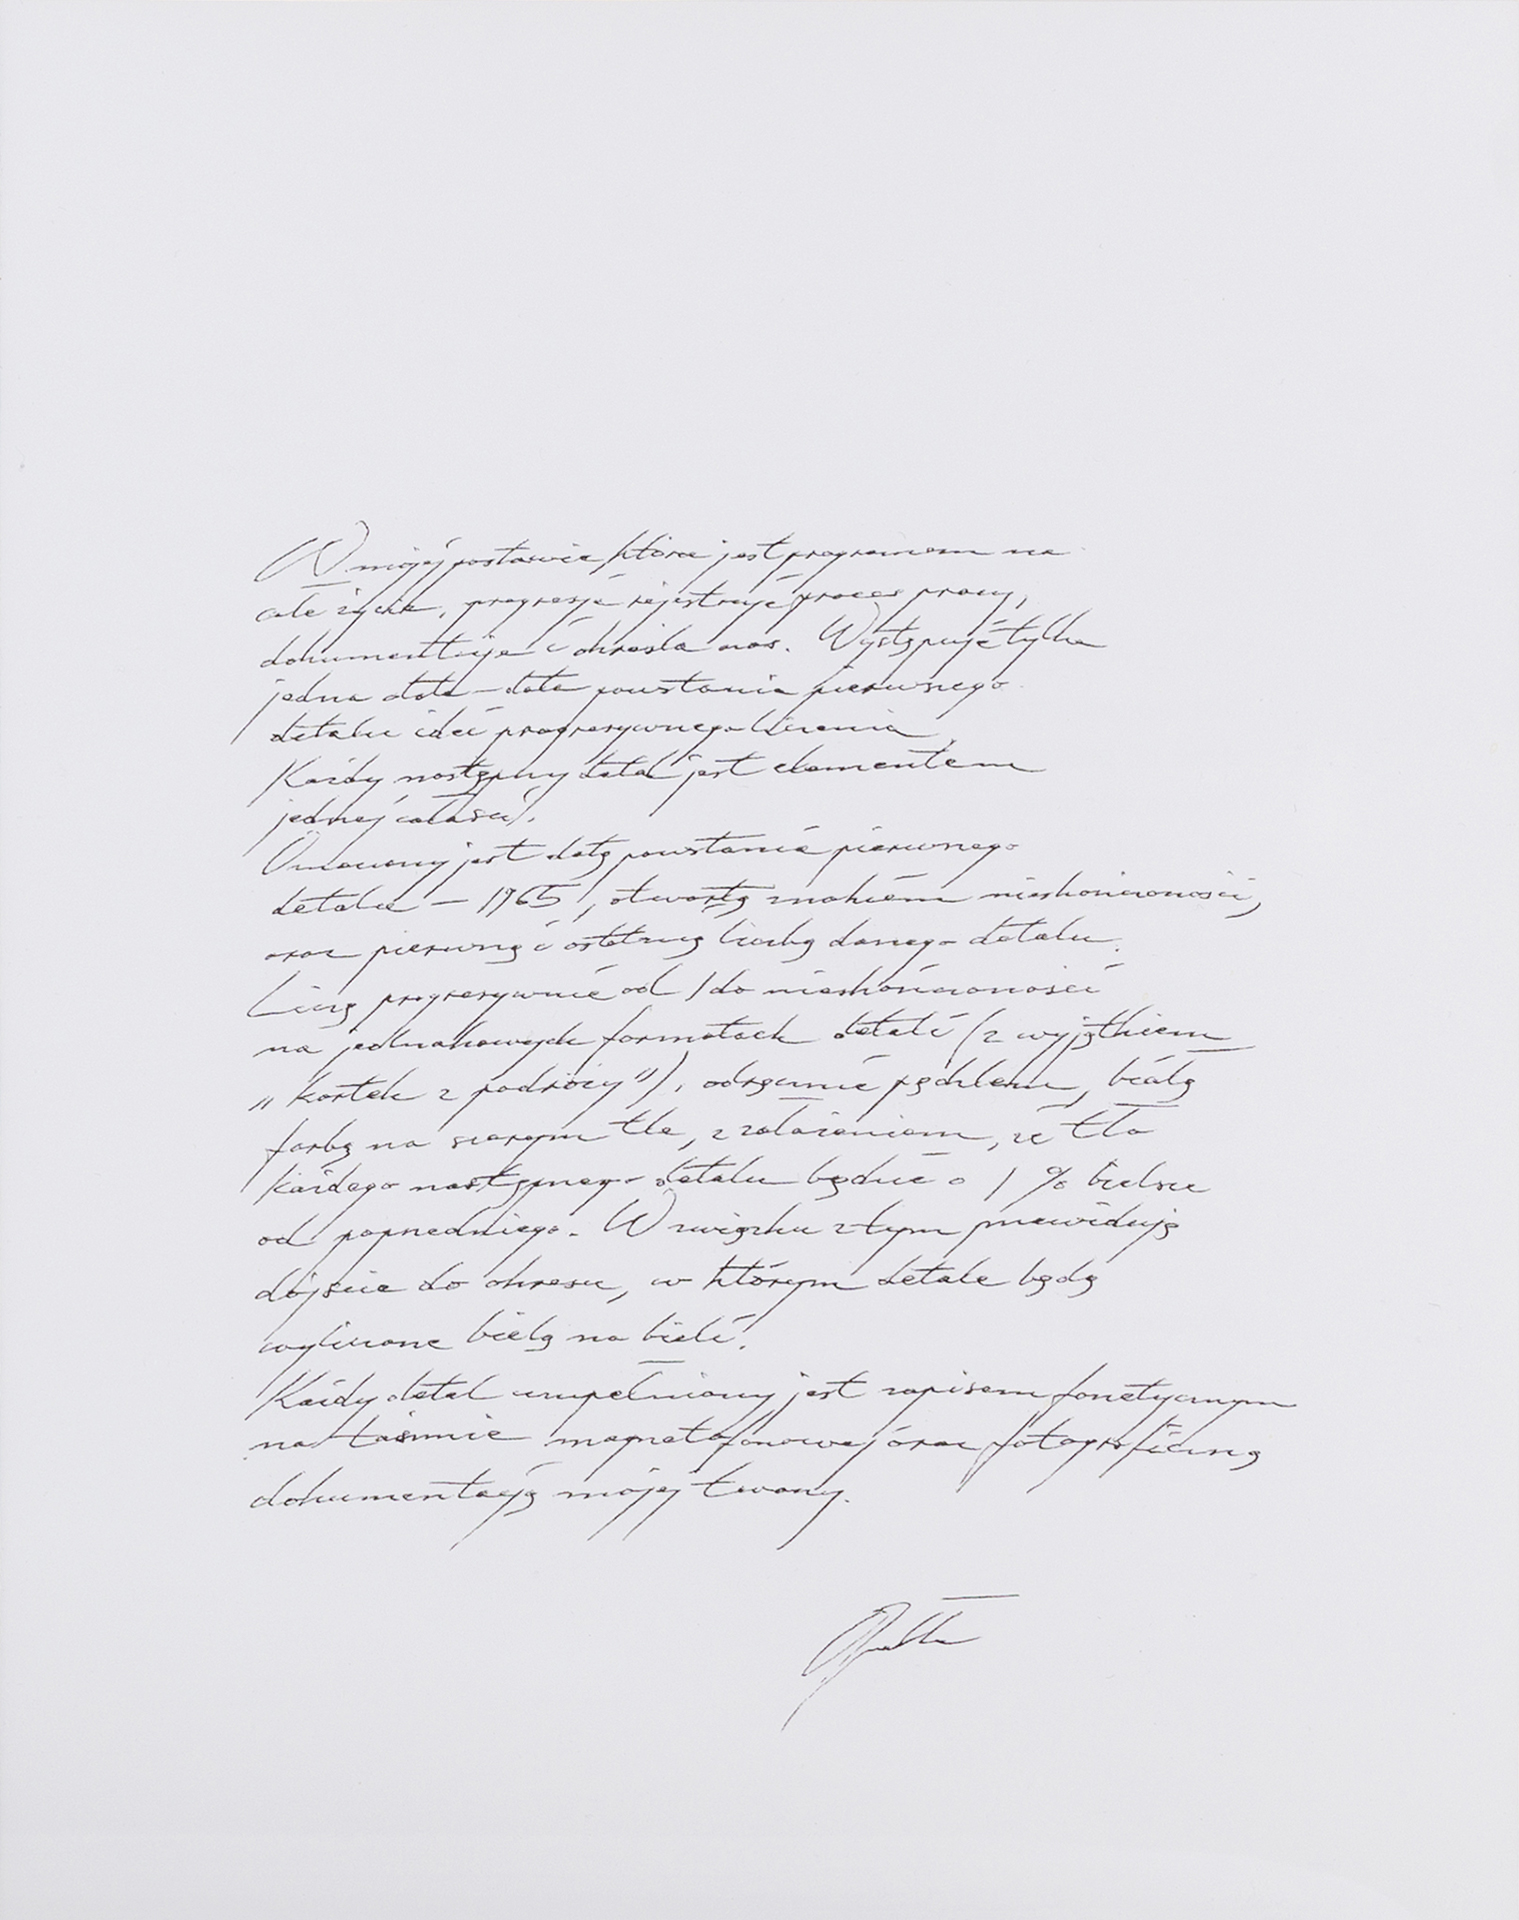 W mojej postawie, która jest programem na
całe życie, progresja rejestruje proces pracy,
dokumentuje i określa czas. Występuje tylko
jedna data – data powstania pierwszego
detalu idei progresywnego liczenia.
Każdy następny detal jest elementem
jednej całości.
Oznaczony jest datą powstania pierwszego
detalu – 1965, otwartą znakiem nieskończoności,
oraz pierwszą i ostatnią liczbą danego detalu.
Liczę progresywnie od 1 do nieskończoności
na jednakowych formatach detali (z wyjątkiem
„kartek z podróży”), odręcznie pędzlem, białą
farbą na szarym tle, z założeniem, że tło
każdego następnego detalu będzie o 1 % bielsze
od poprzedniego. W związku z tym przewiduję
dojście do okresu, w którym detale będą
wyliczone bielą na bieli.
Każdy detal uzupełniony jest zapisem fonetycznym
na taśmie magnetofonowej oraz fotograficzną
dokumentacją mojej twarzy.
Opałka